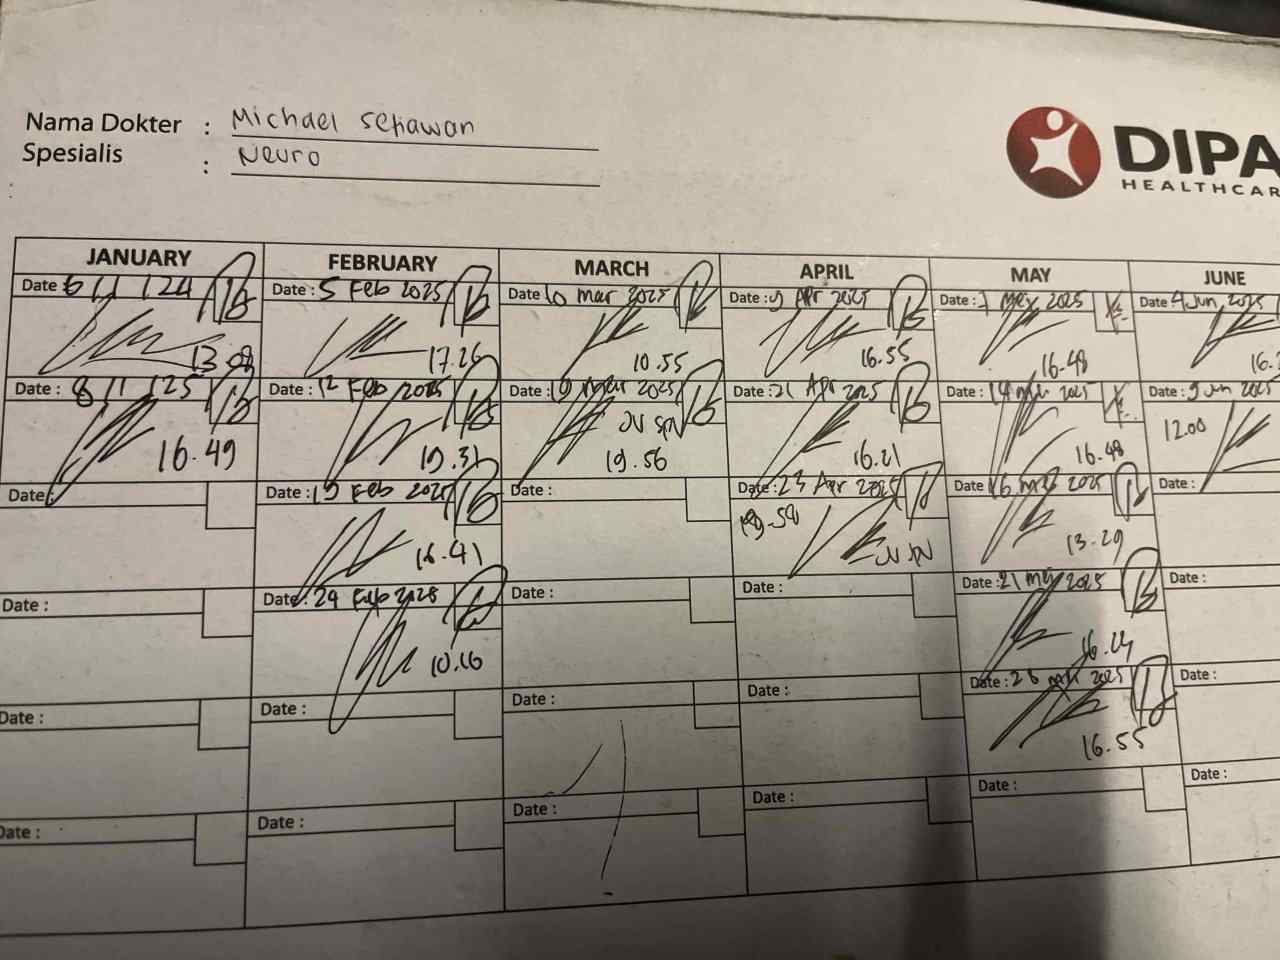 Nama Dokter : Michael Setiawan
Spesialis : Neuro
DIPA
HEALTHCAR
JANUARY FEBRUARY MARCH APRIL MAY JUNE
Date 6/1/24 Date : 5 Feb 2025 Date 10 mar 2025 Date : 9 Apr 2025 Date : 7 Mey 2025 Date 4 Jun 2025
13.08 17.26 10.55 16.55 16.48 16.
Date : 8/1/25 Date : 12 Feb 2025 Date : 19 Mar 2025 Date : 21 Apr 2025 Date : 14 2025 Date : 9 Jun 2025
16.49 19.31 JV SPN 19.56 16.21 16.48 12.00
Date : Date : 19 Feb 2025 Date : Date : 23 Apr 2025 Date 16 2025 Date :
16.41 19.58 JV SPN 13.29
Date : Date : 24 Feb 2025 Date : Date : Date : 21 2025 Date :
10.16 16.24
Date : Date : Date : Date : Date : 26 2025 Date :
16.55
Date : Date : Date : Date : Date : Date :